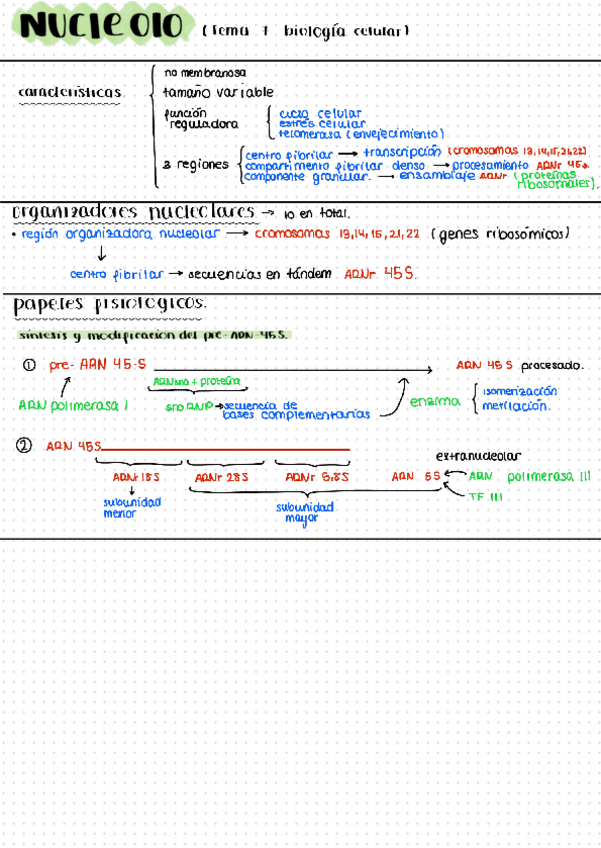 NUCLEOLO (Tema 7 biología celular)
características
no membranosa
tamaño variable
función reguladora
ciclo celular
estrés celular
telomerasa (envejecimiento)
3 regiones
centro fibrilar → transcripción (cromosomas 13,14,15,21,22)
compartimento fibrilar denso → procesamiento ARNr 45s
componente granular → ensamblaje ARNr (proteínas ribosomales).
organizadores nucleolares → 10 en total.
• región organizadora nucleolar → cromosomas 13,14,15,21,22 (genes ribosómicos)
↓
centro fibrilar → secuencias en tándem ARNr 45S.
papeles fisiológicos.
síntesis y modificación del pre-ARN-45S.
① pre-ARN 45-S → ARN 45S procesado.
ARNsno + proteína
ARN polimerasa I
snoRNP → secuencia de bases complementarias
enzima
isomerización
metilación.
② ARN 45S
extranucleolar
ARNr 18S ARNr 28S ARNr 5,8S ARN 5S ← ARN polimerasa III
TF III
subunidad menor
subunidad mayor